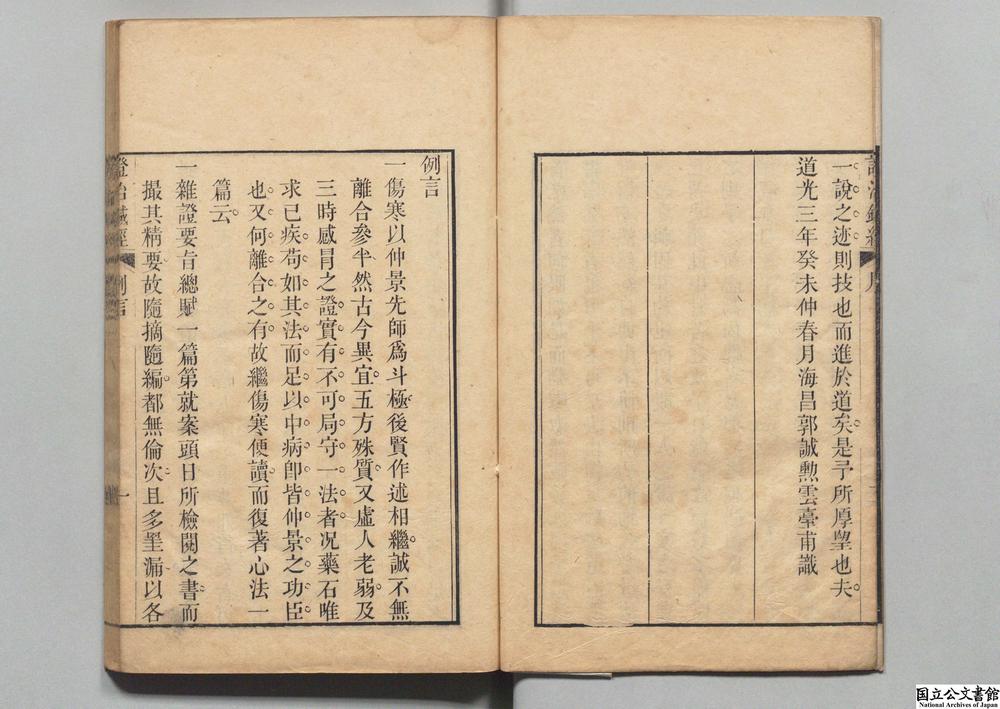 一說之迹則技也而進於道矣是予所厚望也夫
道光三年癸未仲春月海昌郭誠勲雲臺甫識
例言
一傷寒以仲景先師爲斗極後賢作述相繼誠不無
離合參半然古今異宜五方殊質又虛人老弱及
三時感冒之證實有不可局守一法者況藥石唯
求已疾苟如其法而足以中病卽皆仲景之功臣
也又何離合之有故繼傷寒便讀而復著心法一
篇云
一雜證要旨總賦一篇第就案頭日所檢閱之書而
撮其精要故隨摘隨編都無倫次且多罣漏以各
證治鍼經
例言
一
国立公文書館
National Archives of Japan